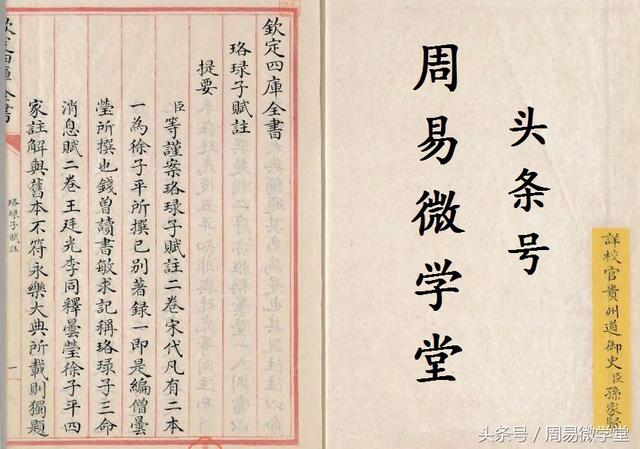 詳校官貴州道御史臣孫家
头条号
周易微学堂
欽定四庫全書
珞琭子賦註
提要
臣等謹案珞琭子賦註二卷宋代凡有二本
一為徐子平所撰已别著録一即是編僧曇
瑩所撰也錢曾讀書敏求記稱珞琭子三命
消息賦二卷王廷光李同釋曇瑩徐子平四
家註解與舊本不符永樂大典所載則獨題
欽定四庫全書
珞琭子賦註
一
头条号/周易微学堂